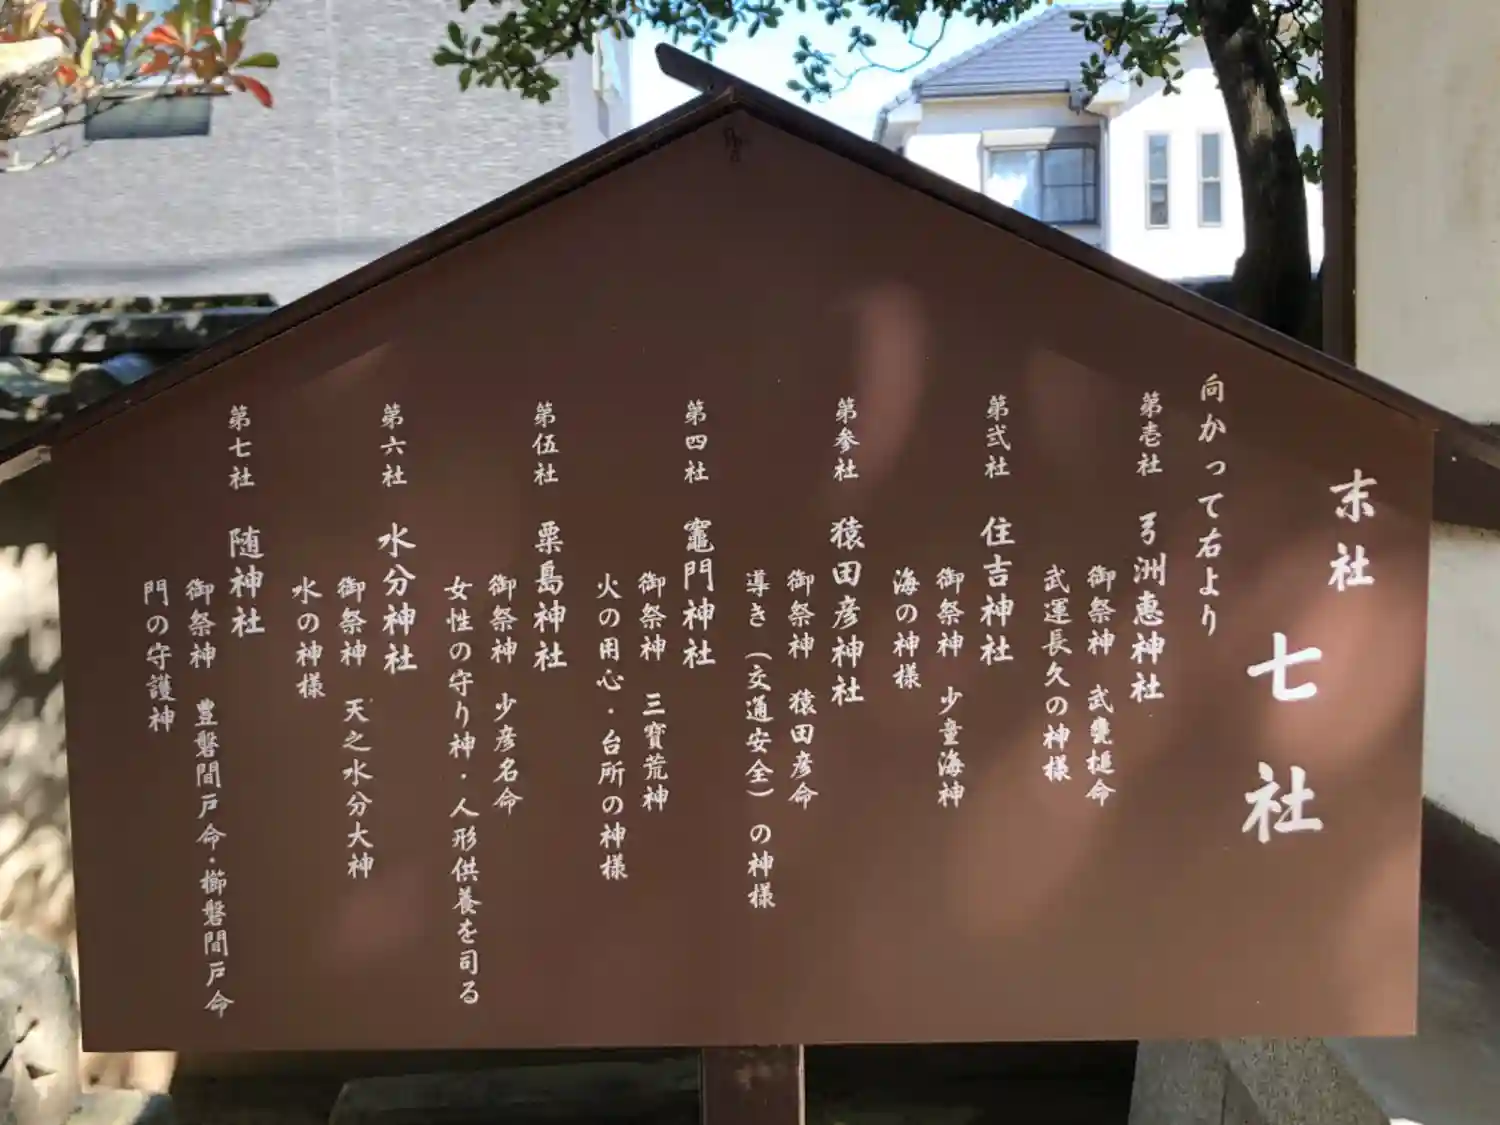 末社 七社
向かって右より
第壱社 弓洲恵神社
御祭神 武甕槌命
武運長久の神様
第弐社 住吉神社
御祭神 少童海神
海の神様
第参社 猿田彦神社
御祭神 猿田彦命
導き（交通安全）の神様
第四社 竈門神社
御祭神 三寳荒神
火の用心・台所の神様
第伍社 粟島神社
御祭神 少彦名命
女性の守り神・人形供養を司る
第六社 水分神社
御祭神 天之水分大神
水の神様
第七社 随神社
御祭神 豊磐間戸命・櫛磐間戸命
門の守護神